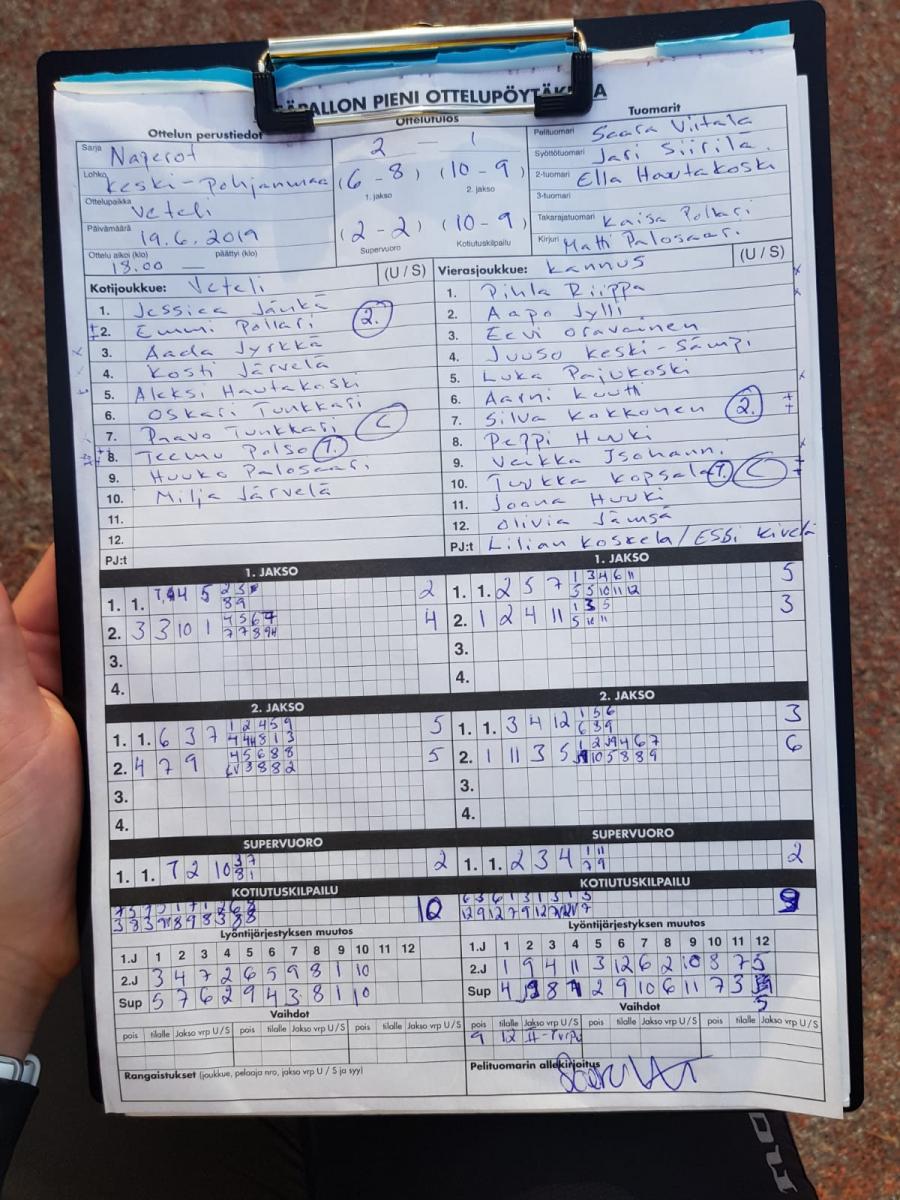 PALLON PIENI OTTELUPÖYTÄ A
Ottelun perustiedot
Sarja Naperot
Lohko Keski-Pohjanmaa
Ottelupaikka Veteli
Päivämäärä 19.6.2019
Ottelu alkoi (klo) päättyi (klo)
18.00 —
Ottelutulos
2 - 1
(6-8) (10-9)
1. jakso 2. jakso
(2-2) (10-9)
Supervuoro Kotiutuskilpailu
Tuomarit
Pelituomari Saara Viitala
Syöttötuomari Jari Siirilä
2-tuomari Ella Hautakoski
3-tuomari
Takarajatuomari Kaisa Polkari
Kirjuri Matti Palosaari
Kotijoukkue: Veteli (U / S)
1. Jessica Jänkä
2. Emmi Pollari 2.
3. Aada Jyrkkä
4. Kosti Järvelä
5. Aleksi Hautakoski
6. Oskari Tunkkari
7. Paavo Tunkkari C
8. Teemu Palso 1.
9. Huuko Palosaari
10. Milja Järvelä
11.
12.
PJ:t
Vierasjoukkue: Kannus (U / S)
1. Pihla Riippa
2. Aapo Jylli
3. Eevi Oravainen
4. Juuso Keski-Sämpi
5. Luka Pajukoski
6. Aarni Kuutti
7. Silva Kokkonen 2.
8. Peppi Huuki
9. Veikka Isohanni
10. Tuukka Kopsala 1. C
11. Joona Huuki
12. Olivia Jämsä
PJ:t Lilian Koskela / Essi Kivelä
1. JAKSO
1. 1. 2
2. 3 3 10 1 4
3.
4.
1. JAKSO
1. 1. 2 5 7 1 3 4 6 11 5
5 5 10 11 12
2. 1 2 4 11 1 3 5 3
3.
4.
2. JAKSO
1. 1. 6 3 7 1 2 4 5 9 5
2. 4 7 9 4 5 6 8 8 5
3.
4.
2. JAKSO
1. 1. 3 4 12 1 5 6 3
6 3 9
2. 1 11 3 5 6
3.
4.
SUPERVUORO
1. 1. 7 2 10 3 7 2
8 1
SUPERVUORO
1. 1. 2 3 4 1 11 2
7 9
KOTIUTUSKILPAILU
10
KOTIUTUSKILPAILU
9
Lyöntijärjestyksen muutos
1.J 1 2 3 4 5 6 7 8 9 10 11 12
2.J 3 4 7 2 6 5 9 8 1 10
Sup 5 7 6 2 9 4 3 8 1 10
Lyöntijärjestyksen muutos
1.J 1 2 3 4 5 6 7 8 9 10 11 12
2.J 1 9 4 11 3 12 6 2 10 8 7 5
Sup 4 8 2 9 10 6 11 7 3
5
Vaihdot
pois tilalle Jakso vrp U / S pois tilalle Jakso vrp U / S pois tilalle Jakso vrp U / S
Vaihdot
pois tilalle Jakso vrp U / S pois tilalle Jakso vrp U / S pois tilalle Jakso vrp U / S
9 12
Rangaistukset (joukkue, pelaaja nro, jakso vrp U / S ja syy)
Pelituomarin allekirjoitus